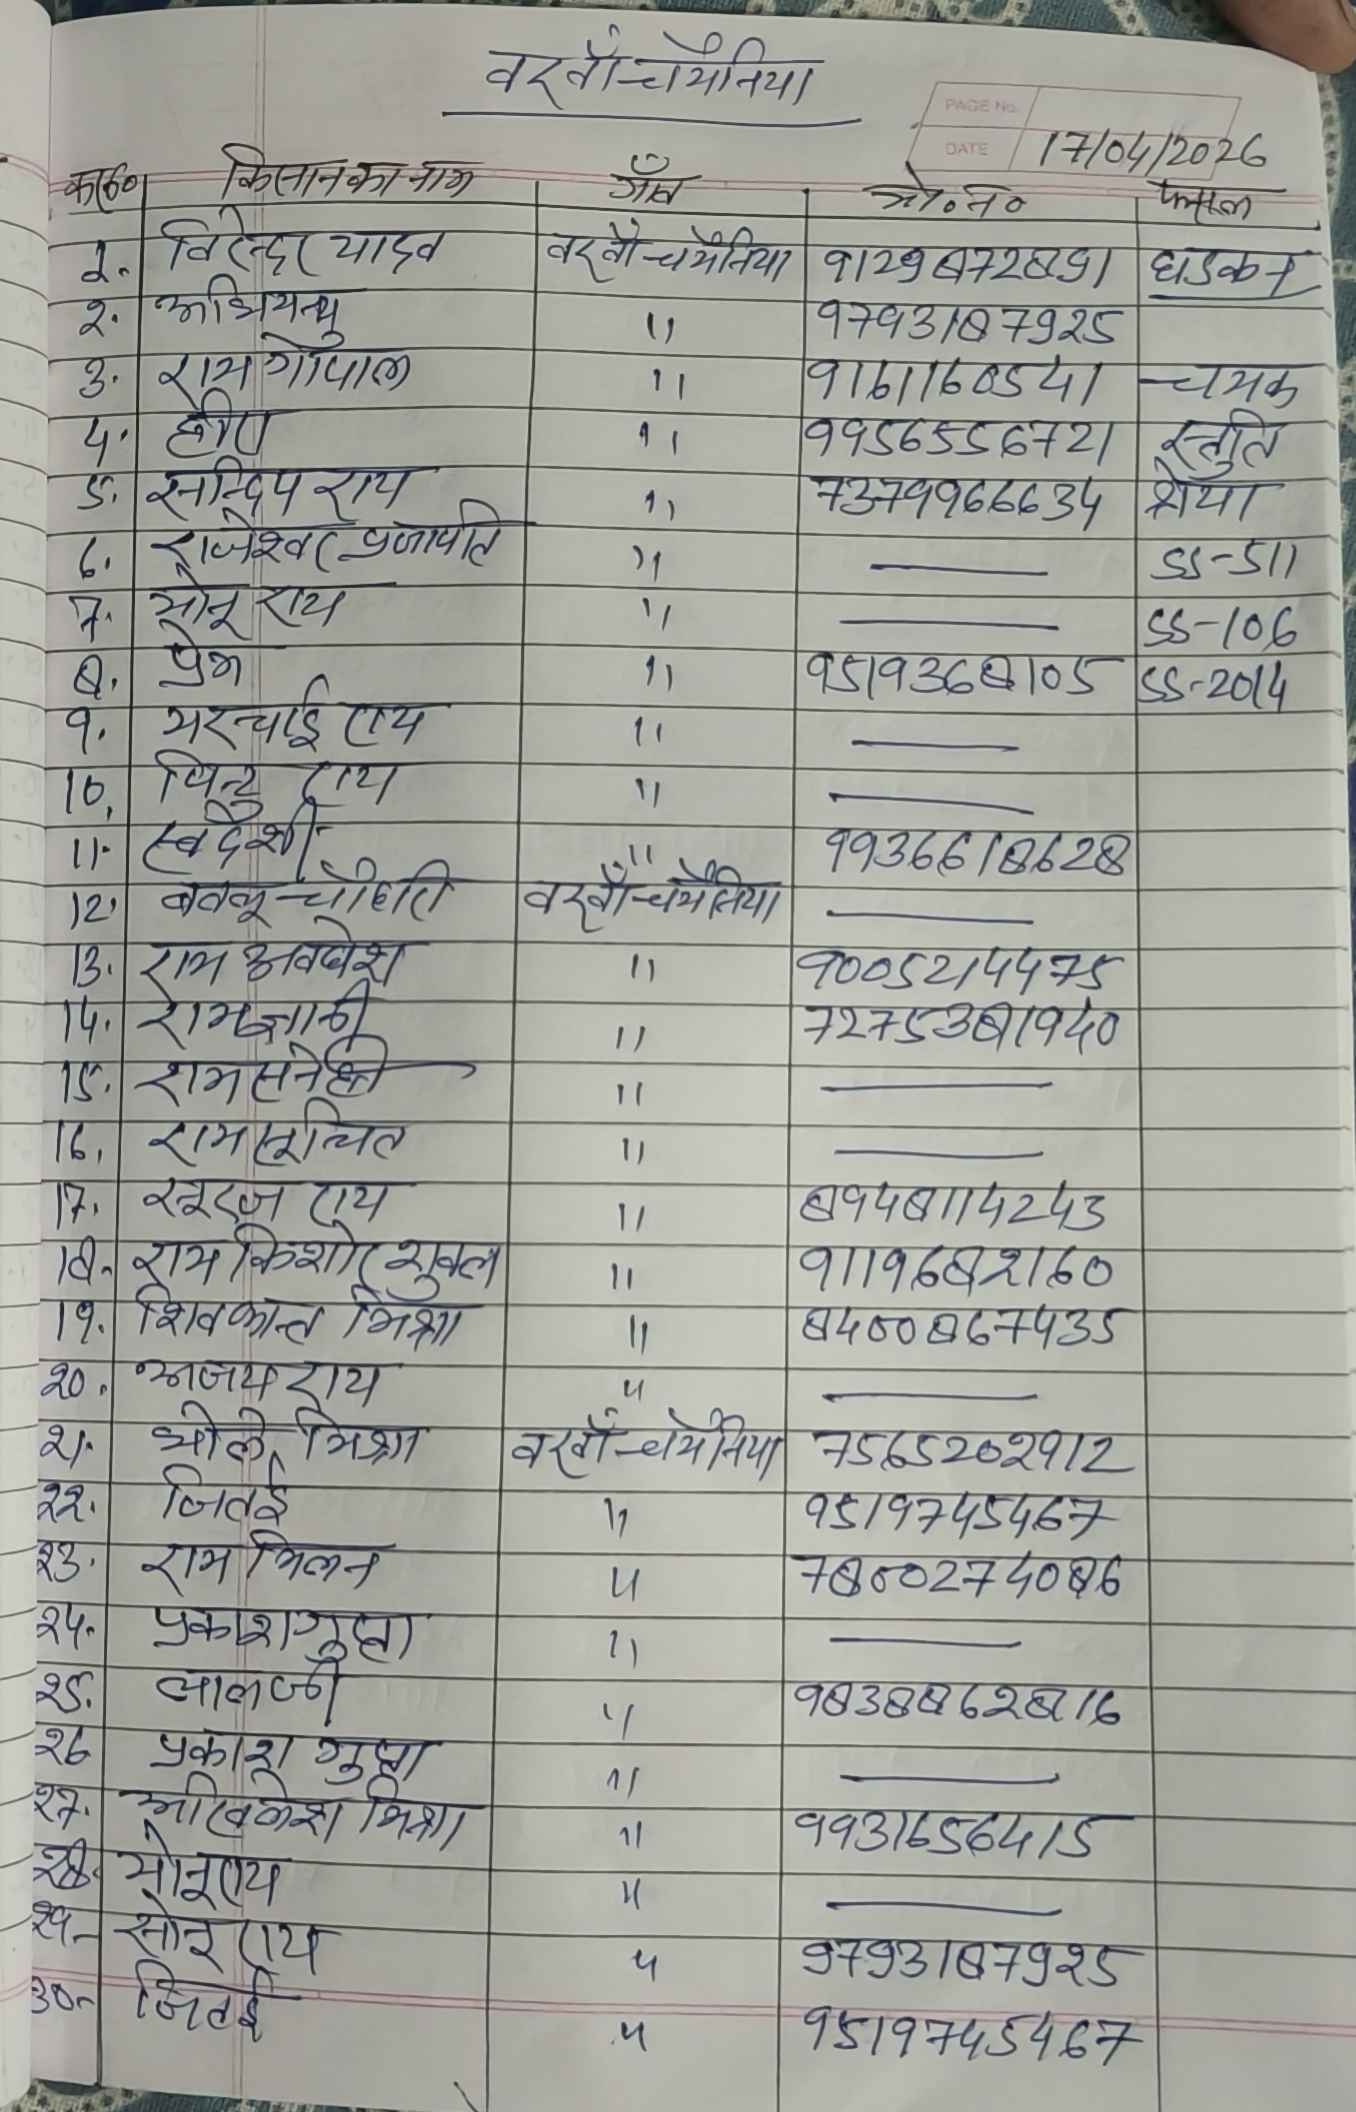 वरवाँ-चमैनिया
PAGE No.
DATE 17/04/2026
क्र०सं० किसान का नाम गाँव मो०नं० फसल
1. विरेन्द्र यादव वरवाँ-चमैनिया 9129872891 धड़कन
२. अभिमन्यु " 9793187925
3. राम गोपाल " 9161160541 चमक
4. हीरा " 9956556721 स्तुति
5. सन्दिप राय " 7379966634 श्रेया
6. राजेश्वर प्रजापति " — SS-511
7. सोनू राय " — SS-106
8. प्रेम " 9519368105 SS-2014
9. मरचाई राय " —
10. पिन्टु राय " —
11. स्वदेशी " 9936618628
12. बबलू चौहान वरवाँ-चमैनिया —
13. राम अवधेश " 9005214475
14. रामज्ञानी " 7275381940
15. राम सनेही " —
16. राम सूचित " —
17. सूरज राय " 8948114243
18. राम किशोर शुक्ल " 9119682160
19. शिवकान्त मिश्रा " 8400867435
२0. अजय राय " —
२1. भोले मिश्रा वरवाँ-चमैनिया 7565202912
२२. जितई " 9519745467
२3. राम मिलन " 7800274086
२4. प्रकाश गुप्ता " —
२5. लालजी " 9838862816
२6 प्रकाश गुप्ता " —
२7. अखिलेश मिश्रा " 9931656415
२8. मोनू राय " —
२9- सोनू राय " 9793187925
30- जितई " 9519745467